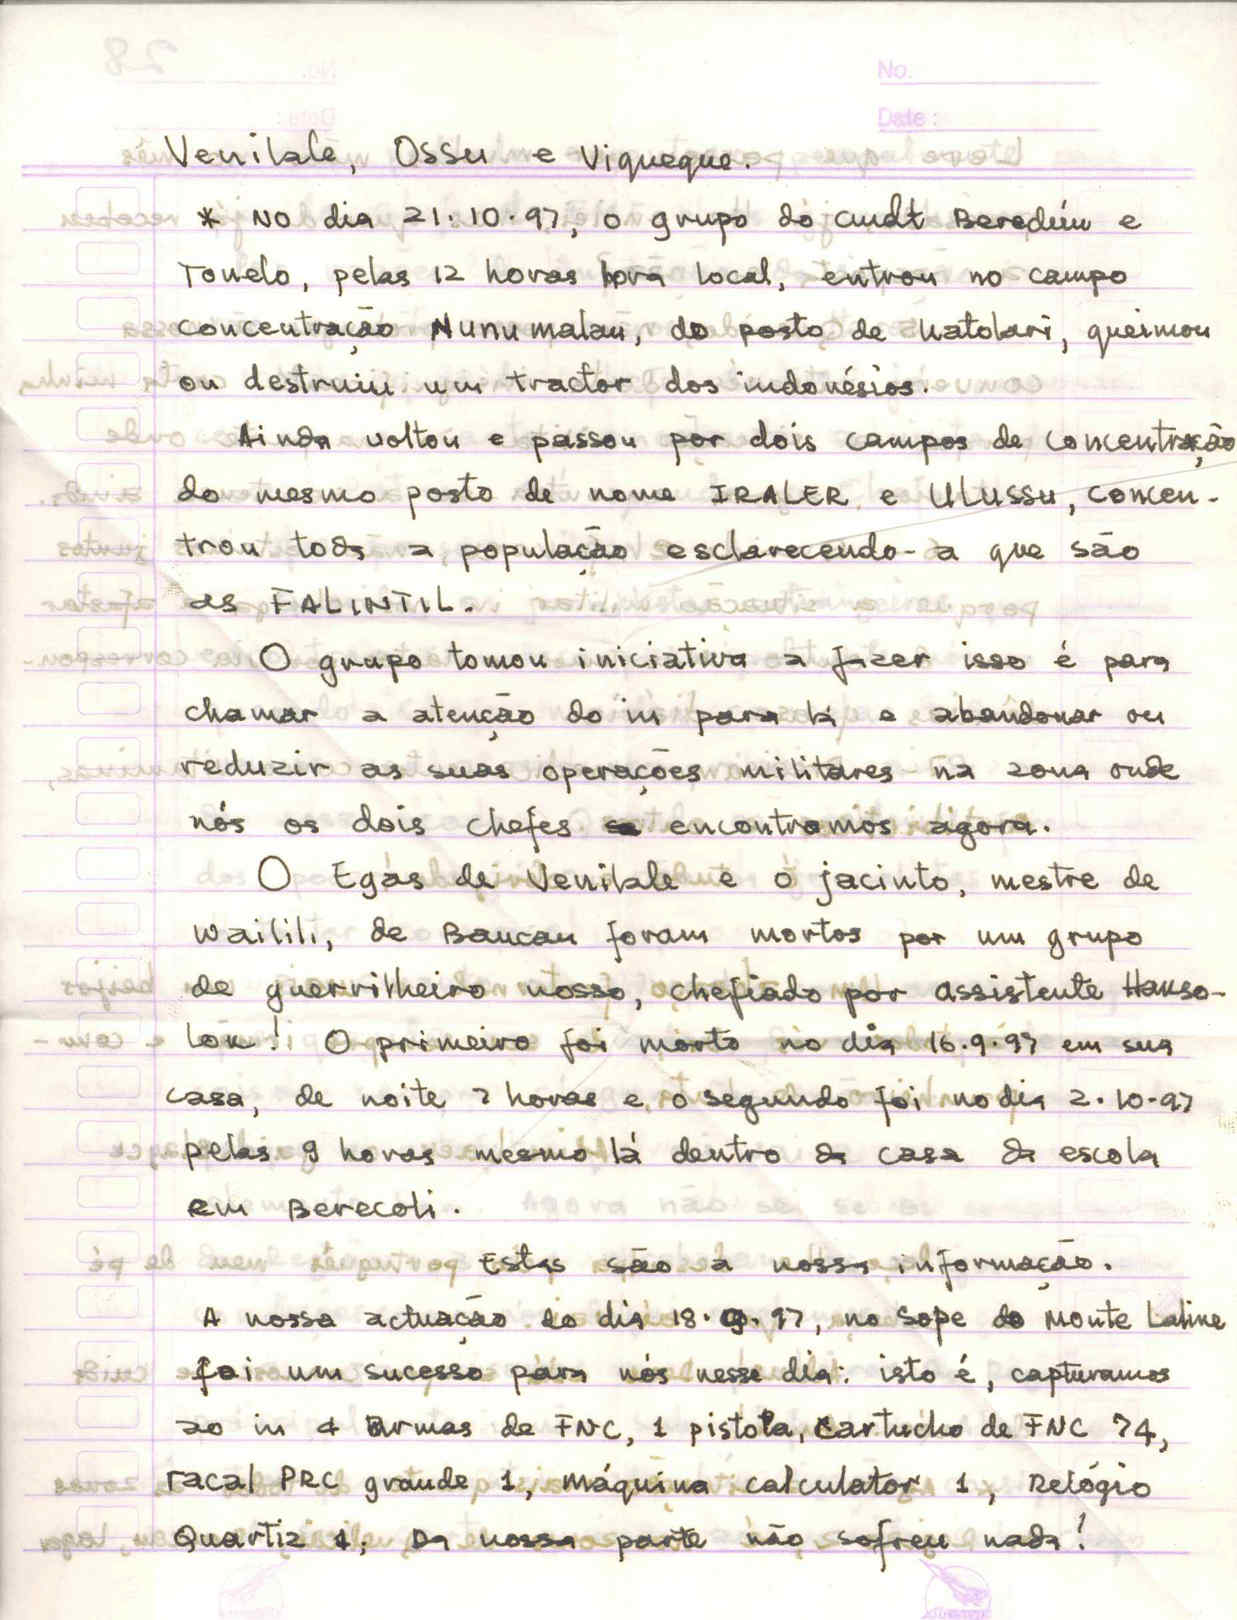 No.
Date:
Venilale, Ossu e Viqueque.
* No dia 21.10.97, o grupo do cmdt Beredúu e
Tonelo, pelas 12 horas hora local, entrou no campo
concentração Nunumalau, do posto de Uatolari, queimou
ou destruiu um tractor dos indonésios.
Ainda voltou e passou por dois campos de concentração
do mesmo posto de nome IRALER e Ulussu, concen-
trou toda a população esclarecendo-a que são
as FALINTIL.
O grupo tomou iniciativa a fazer isso é para
chamar a atenção do in para lá e abandonar ou
reduzir as suas operações militares na zona onde
nós os dois chefes encontramos agora.
O Egas de Venilale e o jacinto, mestre de
Wailili, de Baucau foram mortos por um grupo
de guerrilheiro nosso, chefiado por assistente Hakso-
lok! O primeiro foi morto no dia 16.9.97 em sua
casa, de noite 7 horas e o segundo foi no dia 2.10.97
pelas 9 horas mesmo lá dentro da casa da escola
em Berecoli.
Estas são a nossa informação.
A nossa actuação do dia 18.9.97, no Sope do Monte Laline
foi um sucesso para nós nesse dia: isto é, capturamos
ao in 4 Armas de FNC, 1 pistola, Cartucho de FNC 74,
racal PRC grande 1, máquina calculator 1, Relógio
Quartiz 1; Da nossa parte não sofreu nada!